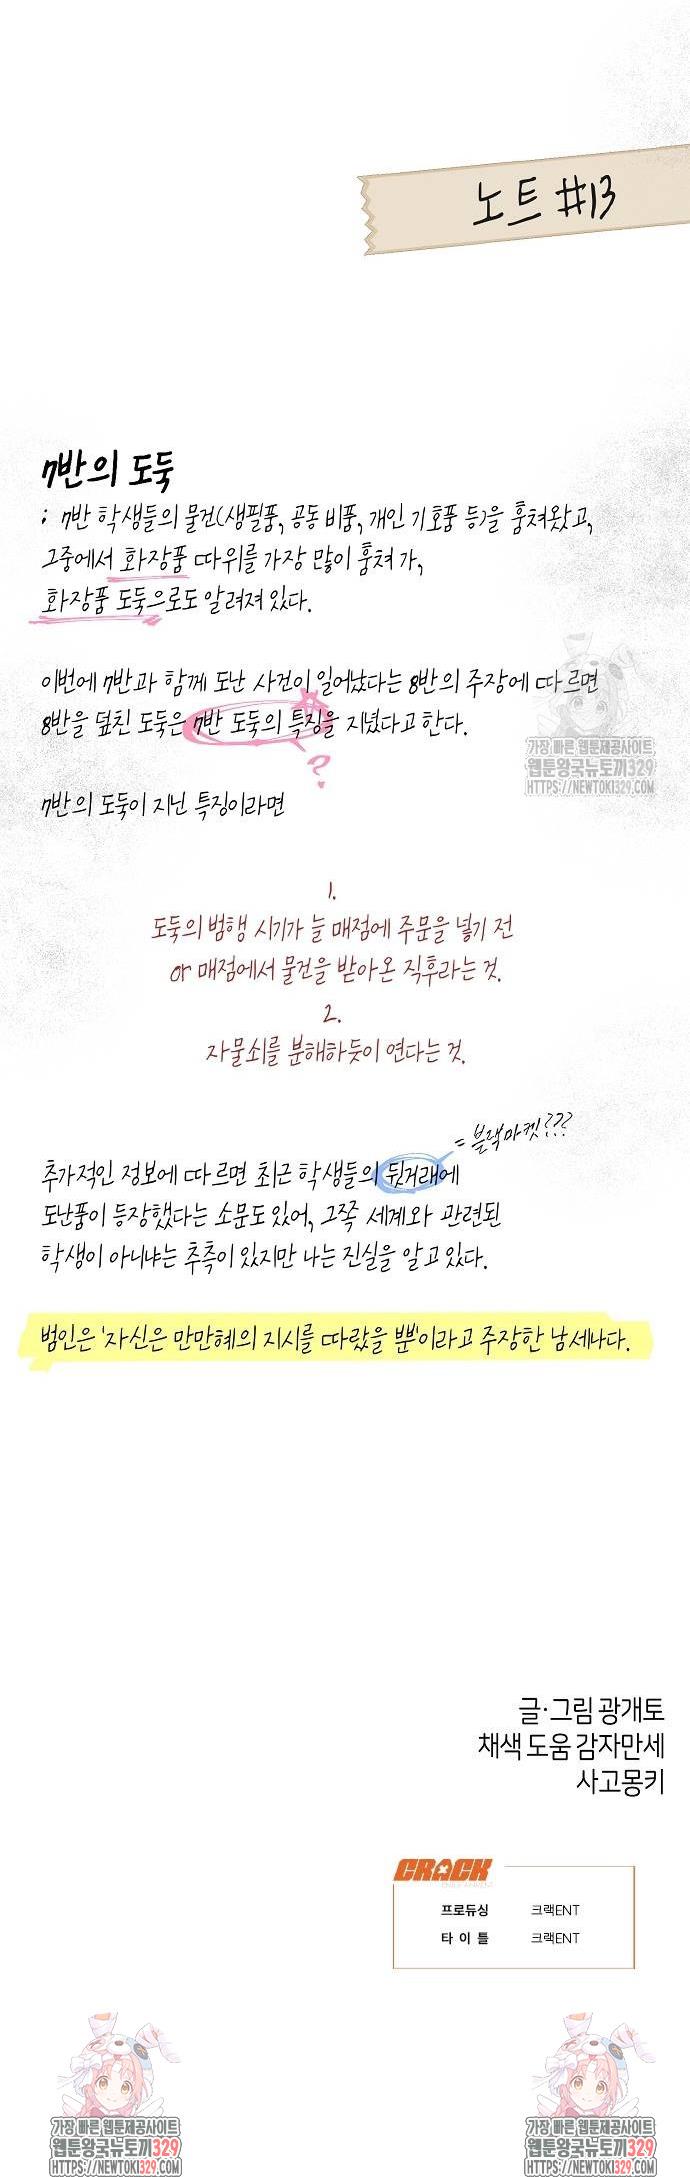 노트 #13
7반의 도둑
: 7반 학생들의 물건(생필품, 공동 비품, 개인 기호품 등)을 훔쳐왔고,
그중에서 화장품 따위를 가장 많이 훔쳐 가,
화장품 도둑으로도 알려져 있다.
이번에 7반과 함께 도난 사건이 일어났다는 8반의 주장에 따르면
8반을 덮친 도둑은 7반 도둑의 특징을 지녔다고 한다.
?
가장 빠른 웹툰제공사이트
웹툰왕국뉴토끼329
HTTPS://NEWTOKI329.COM
7반의 도둑이 지닌 특징이라면
1.
도둑의 범행 시기가 늘 매점에 주문을 넣기 전
or 매점에서 물건을 받아온 직후라는 것.
2.
자물쇠를 분해하듯이 연다는 것.
= 블랙마켓???
추가적인 정보에 따르면 최근 학생들의 뒷거래에
도난품이 등장했다는 소문도 있어, 그쪽 세계와 관련된
학생이 아니냐는 추측이 있지만 나는 진실을 알고 있다.
범인은 '자신은 만만혜의 지시를 따랐을 뿐'이라고 주장한 남세나다.
글·그림 광개토
채색 도움 감자만세
사고몽키
CRACK
프로듀싱 크랙ENT
타이틀 크랙ENT
가장 빠른 웹툰제공사이트
웹툰왕국뉴토끼329
HTTPS://NEWTOKI329.COM
가장 빠른 웹툰제공사이트
웹툰왕국뉴토끼329
HTTPS://NEWTOKI329.COM